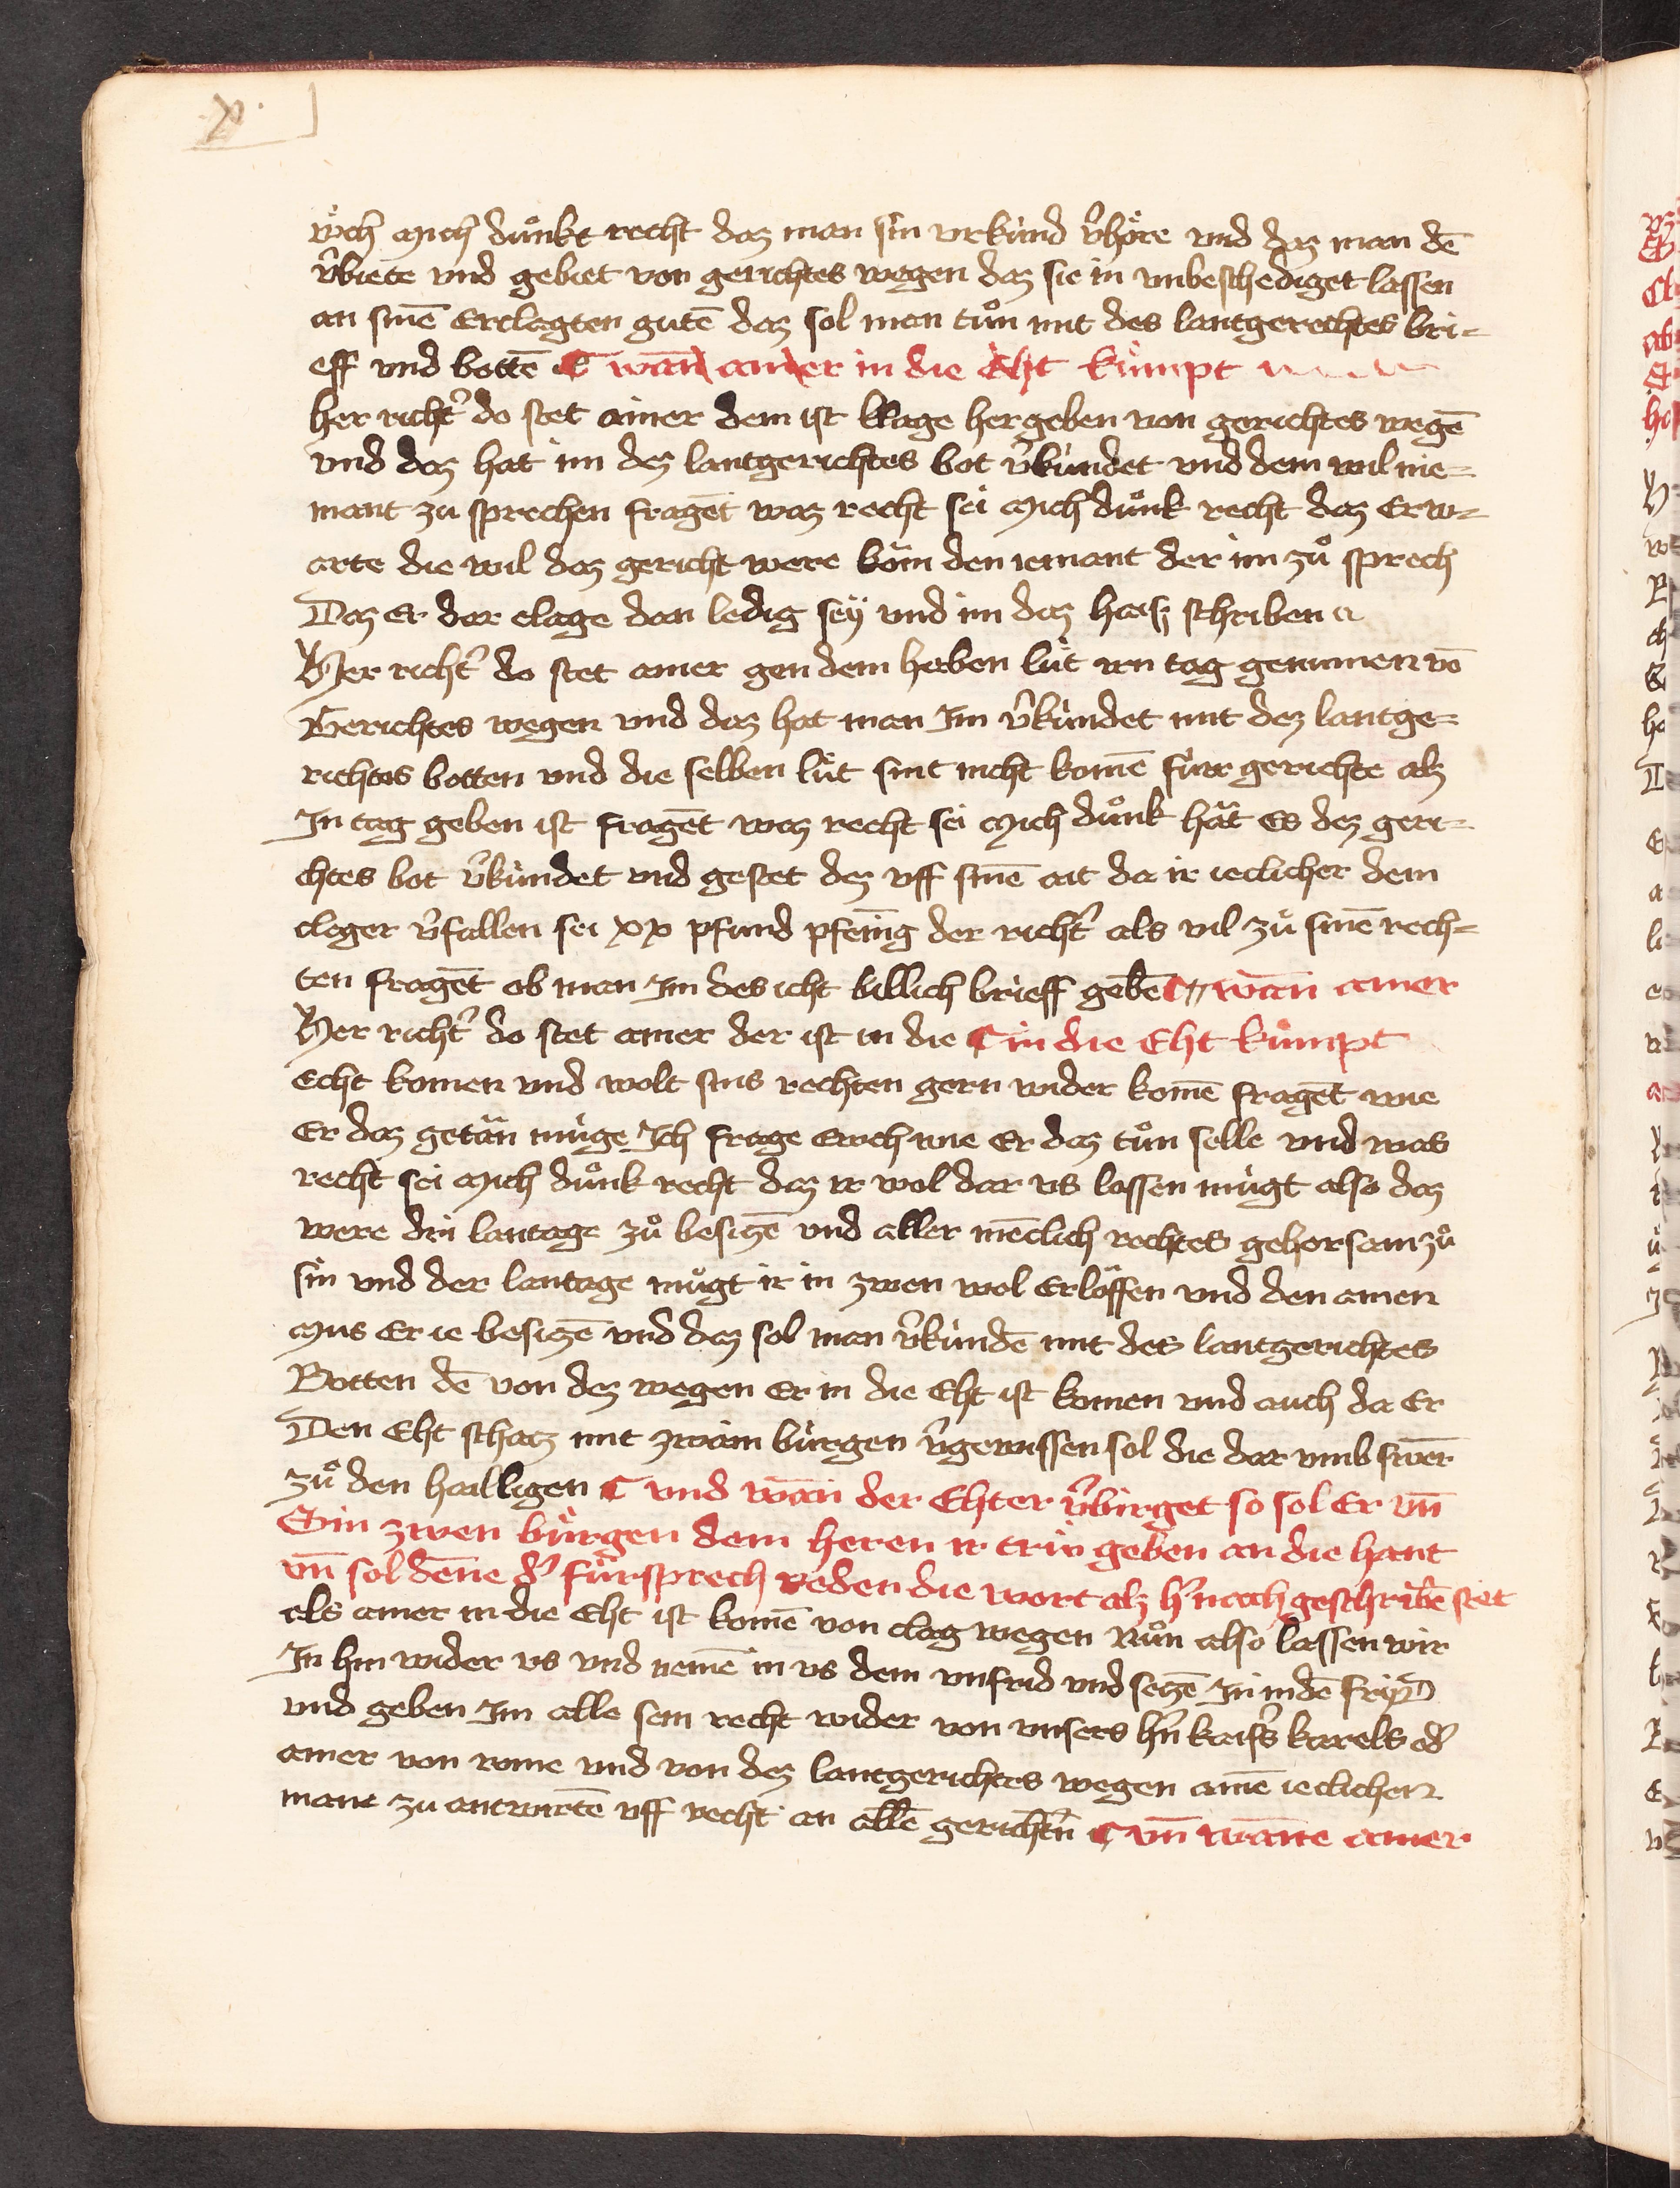 .x.
wͤch mich duͤnkt recht daz man sin vrkund v̉hoͤre vnd daz man dē
v̉biete vnd gebiet von gerichtes wegen daz sie in vnbeschediget lassen
an sinē Erclagten gutē daz sol man tuͦn mit des lantgerechtes bri-
eff vnd bottē ¶ wan ainer in die Aht kuͤmpt
her richt̉ do stet ainer dem ist klage her geben von gerichtes wegē
vnd daz hat im dez lantgerichtes bot v̉kundet vnd dem wil nie-
mant zu sprechen fragēt waz recht sei mich duͤnk recht daz Er w-
arte die wil daz gericht were kaͤm den iemant der im zuͦ sprech
Daz Er der clage dan ledig seÿ vnd im daz haiß schriben
Her richt̉ do stet ainer gen dem haben luͤt irn tag genumen vō
Gerichtes wegen vnd daz hat man Im v̉kundet mit dez lantge-
richtes botten vnd die selben luͤt sint nicht komē fuͤr gerichte alz
In tag geben ist fragēt waz recht sei mich duͤnk haͤt Es dez geri-
chtes bot v̉kundet vnd gestet dez vff sinē ait da ir ieclicher dem
cleger v̉fallen sei xx pfund pfening der richt̉ als vil zuͦ sinē rech-
ten fragēt ob man Im des icht billich brieff gebē ¶ wan̄ ainer
Her richt̉ do stet ainer der ist in die ¶ in die Eht kuͤmpt
Echt komen vnd wolt sins rechten gern wider komē fragēt wie
Er daz getaͤn muge Ich frage Ewch wie Er daz tuͦn selle vnd was
recht sei mich duͤnk recht daz ir wol dar vs lassen muͤgt also daz
were drii lantage zuͦ besizē vnd aller mēclich rechtes gehorsam zuͦ
sin vnd der lantage muͤgt ir in zwen wol Erlaͤssen vnd den ainen
mus Er ie besizē vnd daz sol man v̉kundē mit des lantgerichtes
Botten dē von dez wegen Er in die Eht ist komen vnd auch da Er
Den Eht schatz mit zwain burgen v̉gewissen sol die dar vmb swer̄
zuͦ den hailligen ¶ vnd wan̄ der Ehter v̉burget so sol Er vn̄
Sin zwen burgen dem heren ir triw geben an die hant
vn̄ sol dēne d̉ fuͤrsprech reden die wort alz h̉nach geschribē stet
als ainer in die Eht ist komē von clag wegen Nuͦn also lassen wir
In hin wider vs vnd nemē in vs dem vnfrid vnd sezē In in dē frid
vnd geben Im alle sein recht wider von vnsers hn̉ kaiss̉ karels od̉
ainer von rome vnd von dez lantgerichtes wegen ainē ieclichen
mane zu antwurtē vff recht an allē gerichtn̄ ¶ vn̄ wanne ainer